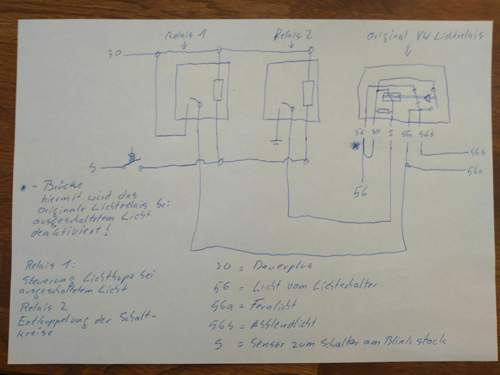 Relais 1
Relais 2
Original VW Lichtrelais
30
56 30 S 56a 56b
S
56b
56a
56
* - Brücke
hiermit wird das
originale Lichtrelais bei
ausgeschaltetem Licht
deaktiviert!
Relais 1:
Steuerung Lichthupe bei
ausgeschaltetem Licht
Relais 2
Entkoppelung der Schalt-
kreise
30 = Dauerplus
56 = Licht vom Lichtschalter
56a = Fernlicht
56b = Abblendlicht
S = Sensor zum Schalter am Blinkstock